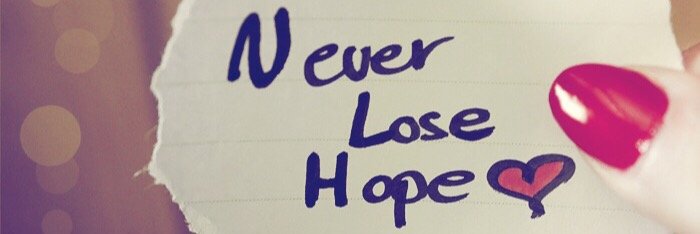 Never
Lose
Hope